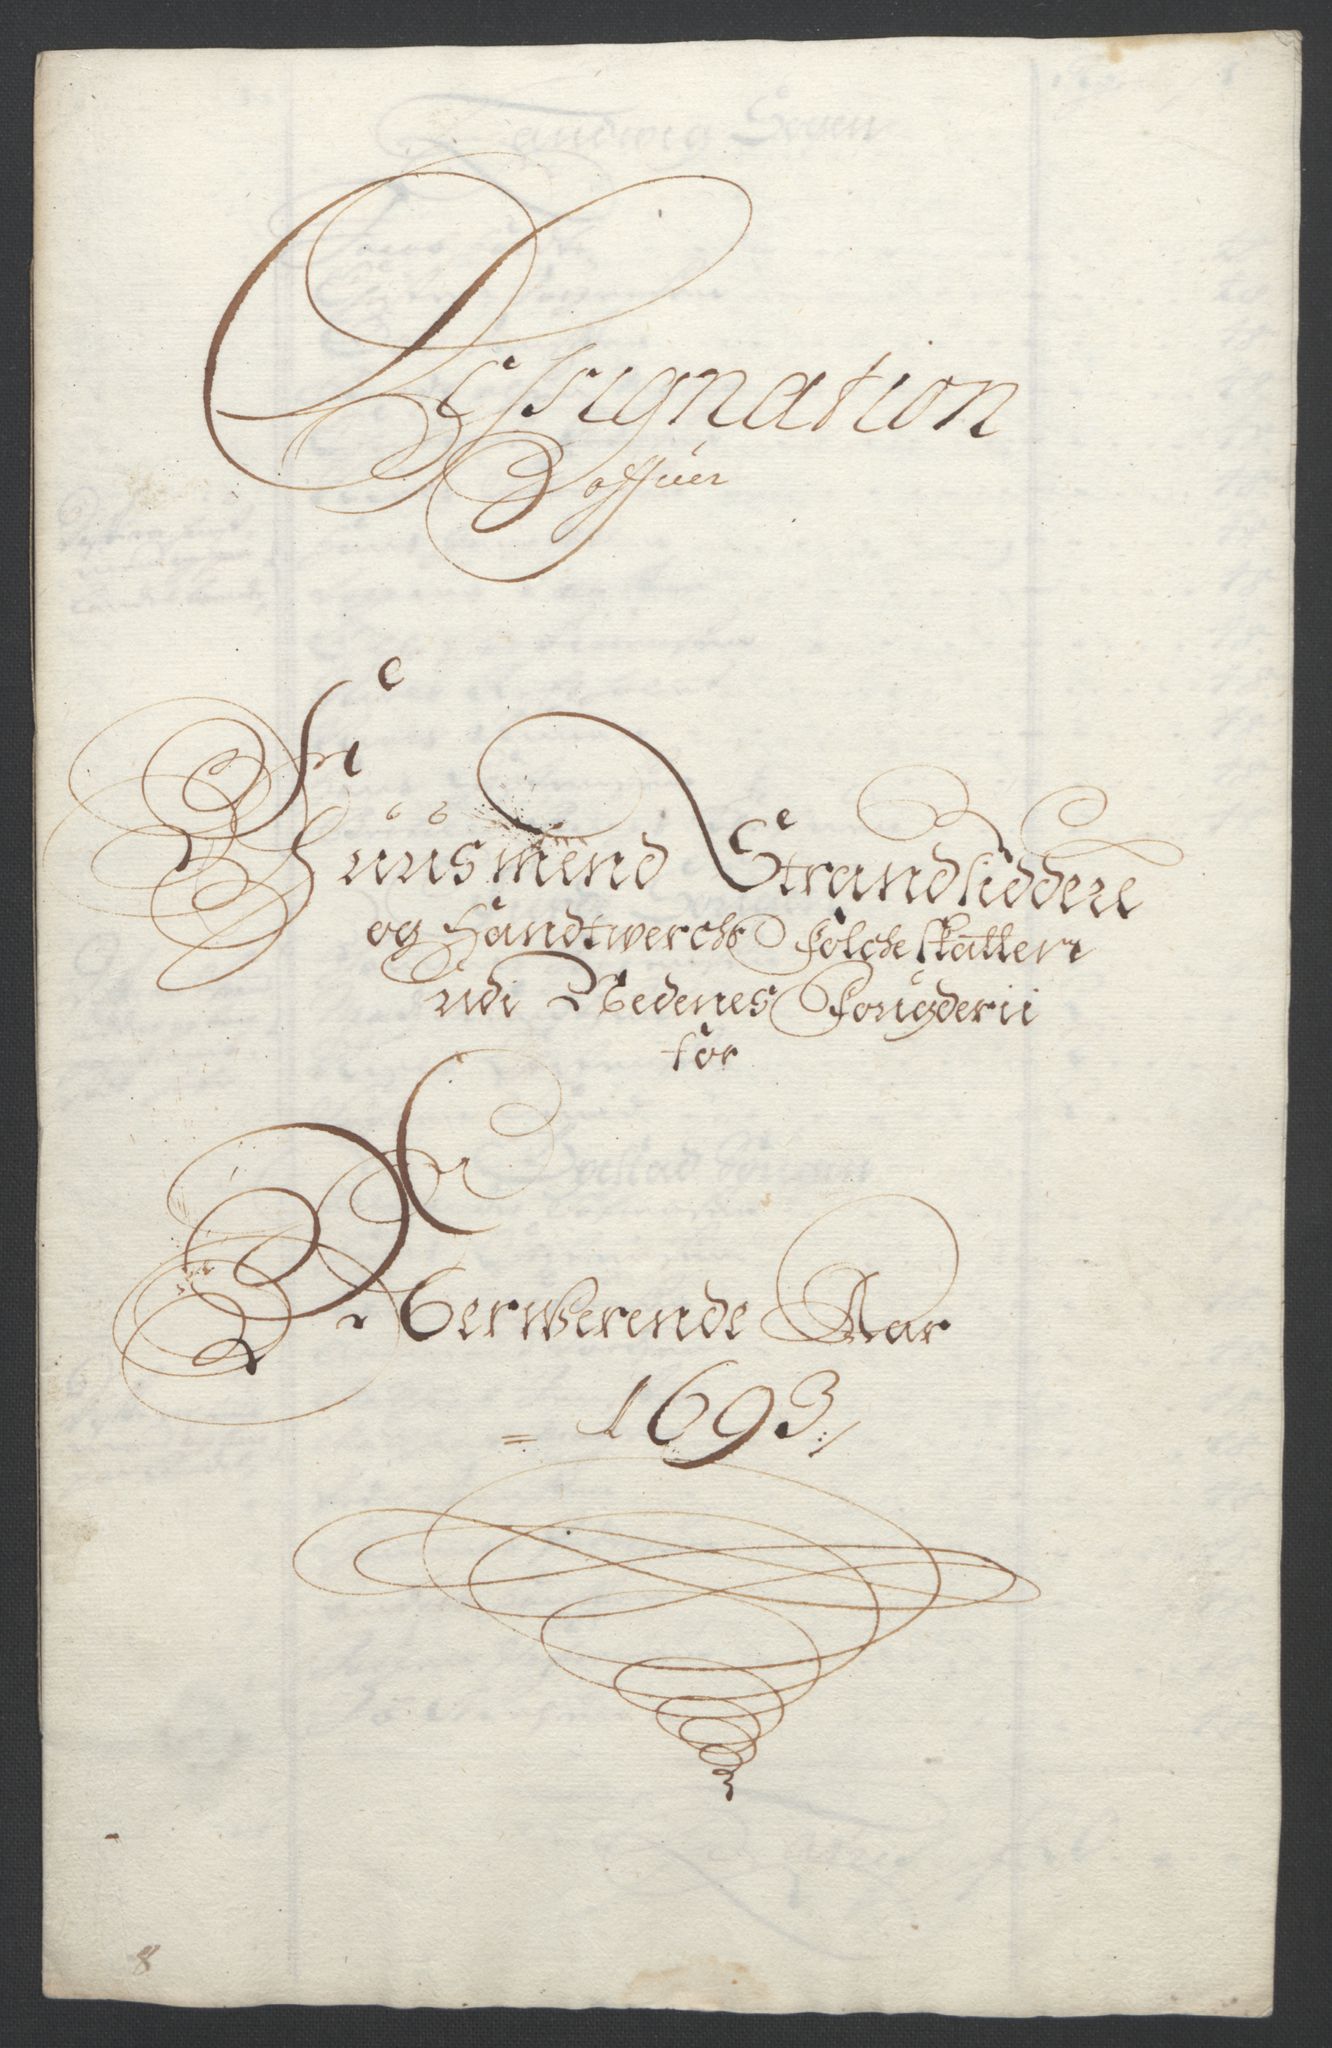 Dessignation
offuer
Huusmend Strandsiddere
og Handtwerchs Folche skatten
udi Nedenes Fougderii
for
Nerwerende Aar
= 1693 ./
8